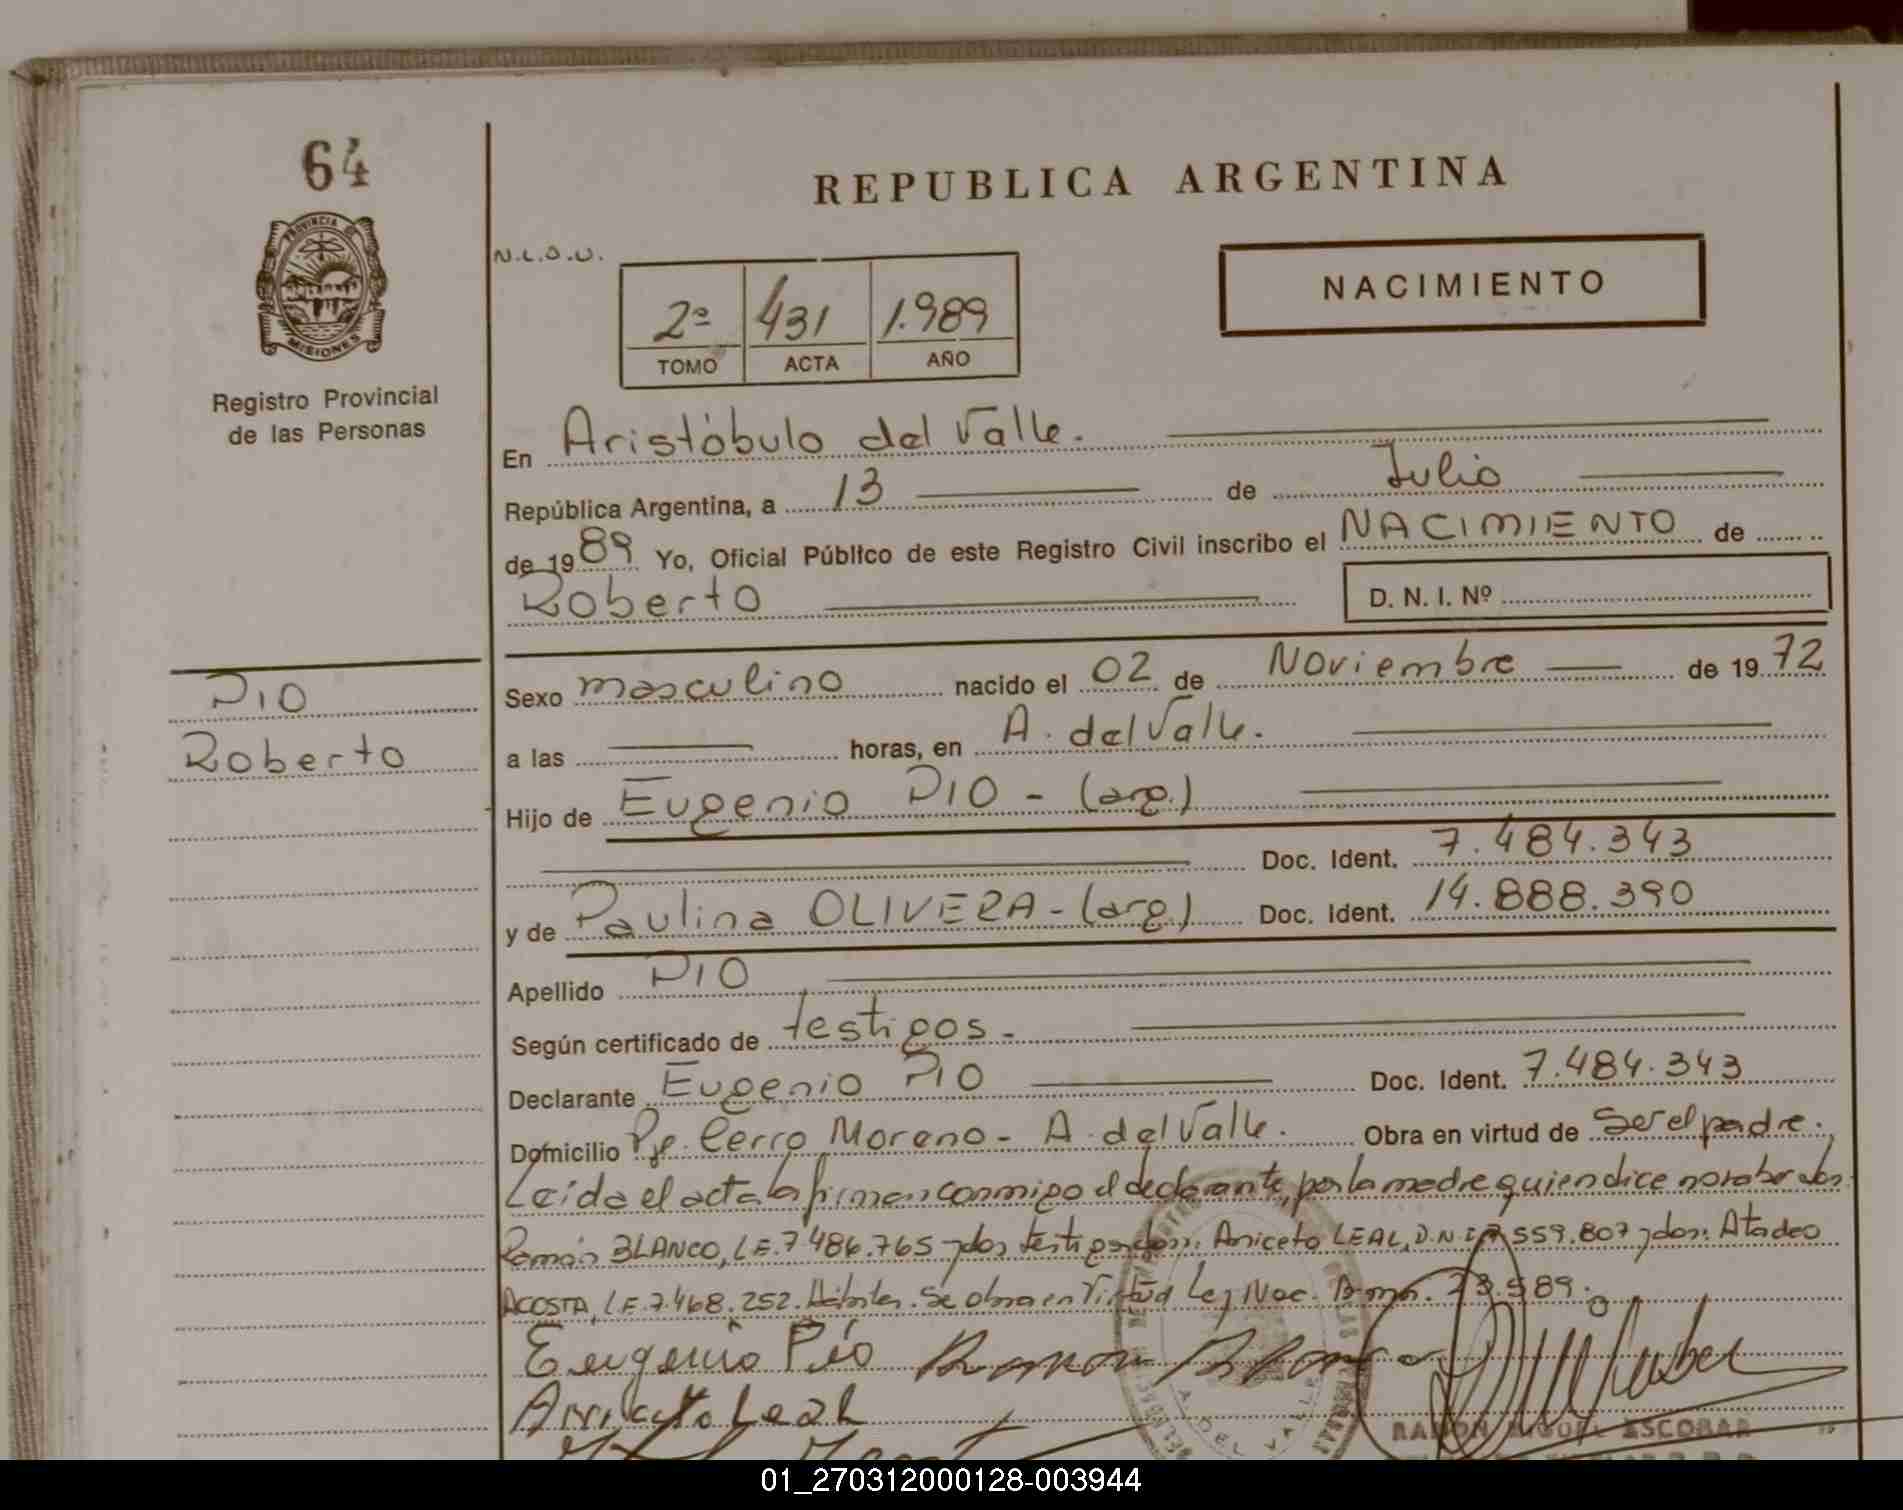 64
PROVINCIA DE
MISIONES
Registro Provincial
de las Personas
REPUBLICA ARGENTINA
N.L.O.U.
NACIMIENTO
2º 431 1.989
TOMO ACTA AÑO
En Aristóbulo del Valle.
República Argentina, a 13 de Julio
de 1989 Yo, Oficial Público de este Registro Civil inscribo el NACIMIENTO de
Roberto D. N. I. Nº
PIO
Roberto
Sexo masculino nacido el 02 de Noviembre de 1972
a las horas, en A. del Valle.
Hijo de Eugenio PIO - (arg.)
Doc. Ident. 7.484.343
y de Paulina OLIVERA - (arg.) Doc. Ident. 14.888.390
Apellido PIO
Según certificado de testigos.
Declarante Eugenio PIO Doc. Ident. 7.484.343
Domicilio Pje. Cerro Moreno - A. del Valle. Obra en virtud de Ser el padre.
Leída el acta la firman conmigo el declarante, por la madre quien dice no saber
Ramón BLANCO, L.E. 7.486.765 y dos testigos Aniceto LEAL, D.N.I. 559.807 Atadeo
ACOSTA, L.E. 7.468.252. Hábiles. Se obra en Virtud Ley Nac. 23.589.
Eugenio Pio Ramon Blanco
Aniceto Leal
RAMON MIGUEL ESCOBAR
01_270312000128-003944